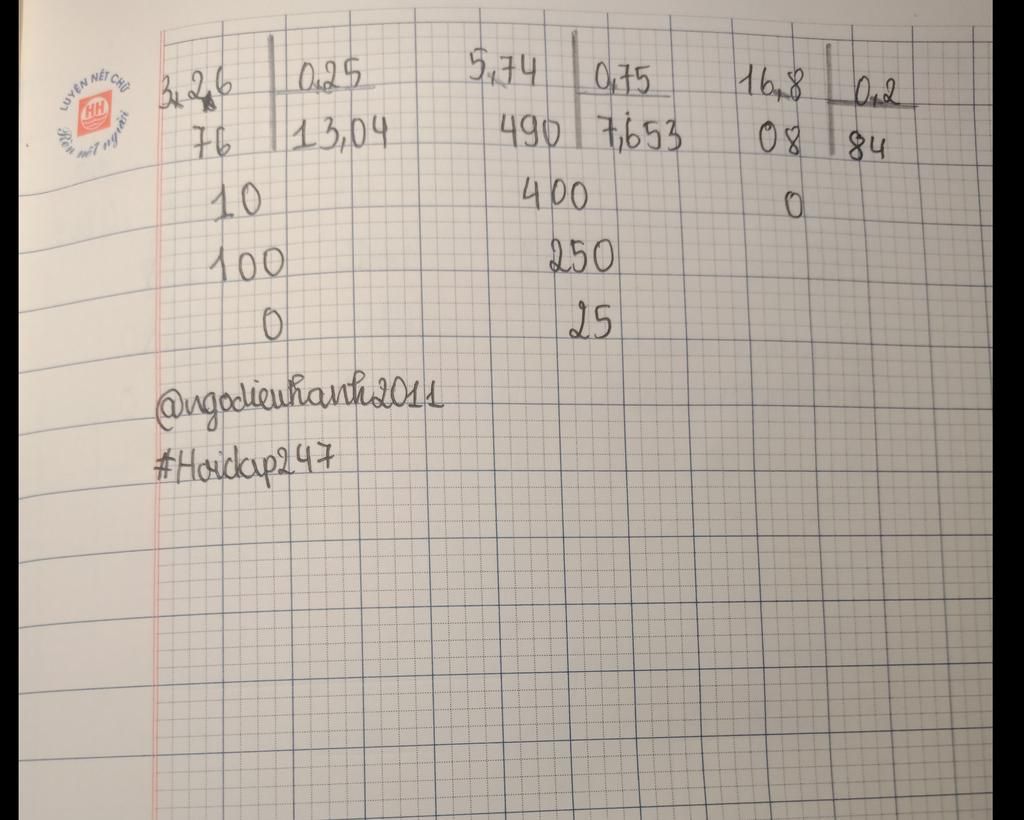 LUYỆN NÉT CHỮ
HH
Rèn nết người
3,2,6 0,25
76 13,04
10
100
0
5,74 0,75
490 7,653
400
250
25
16,8 0,2
08 84
0
@ngodieukhanh2011
#Hoidap247